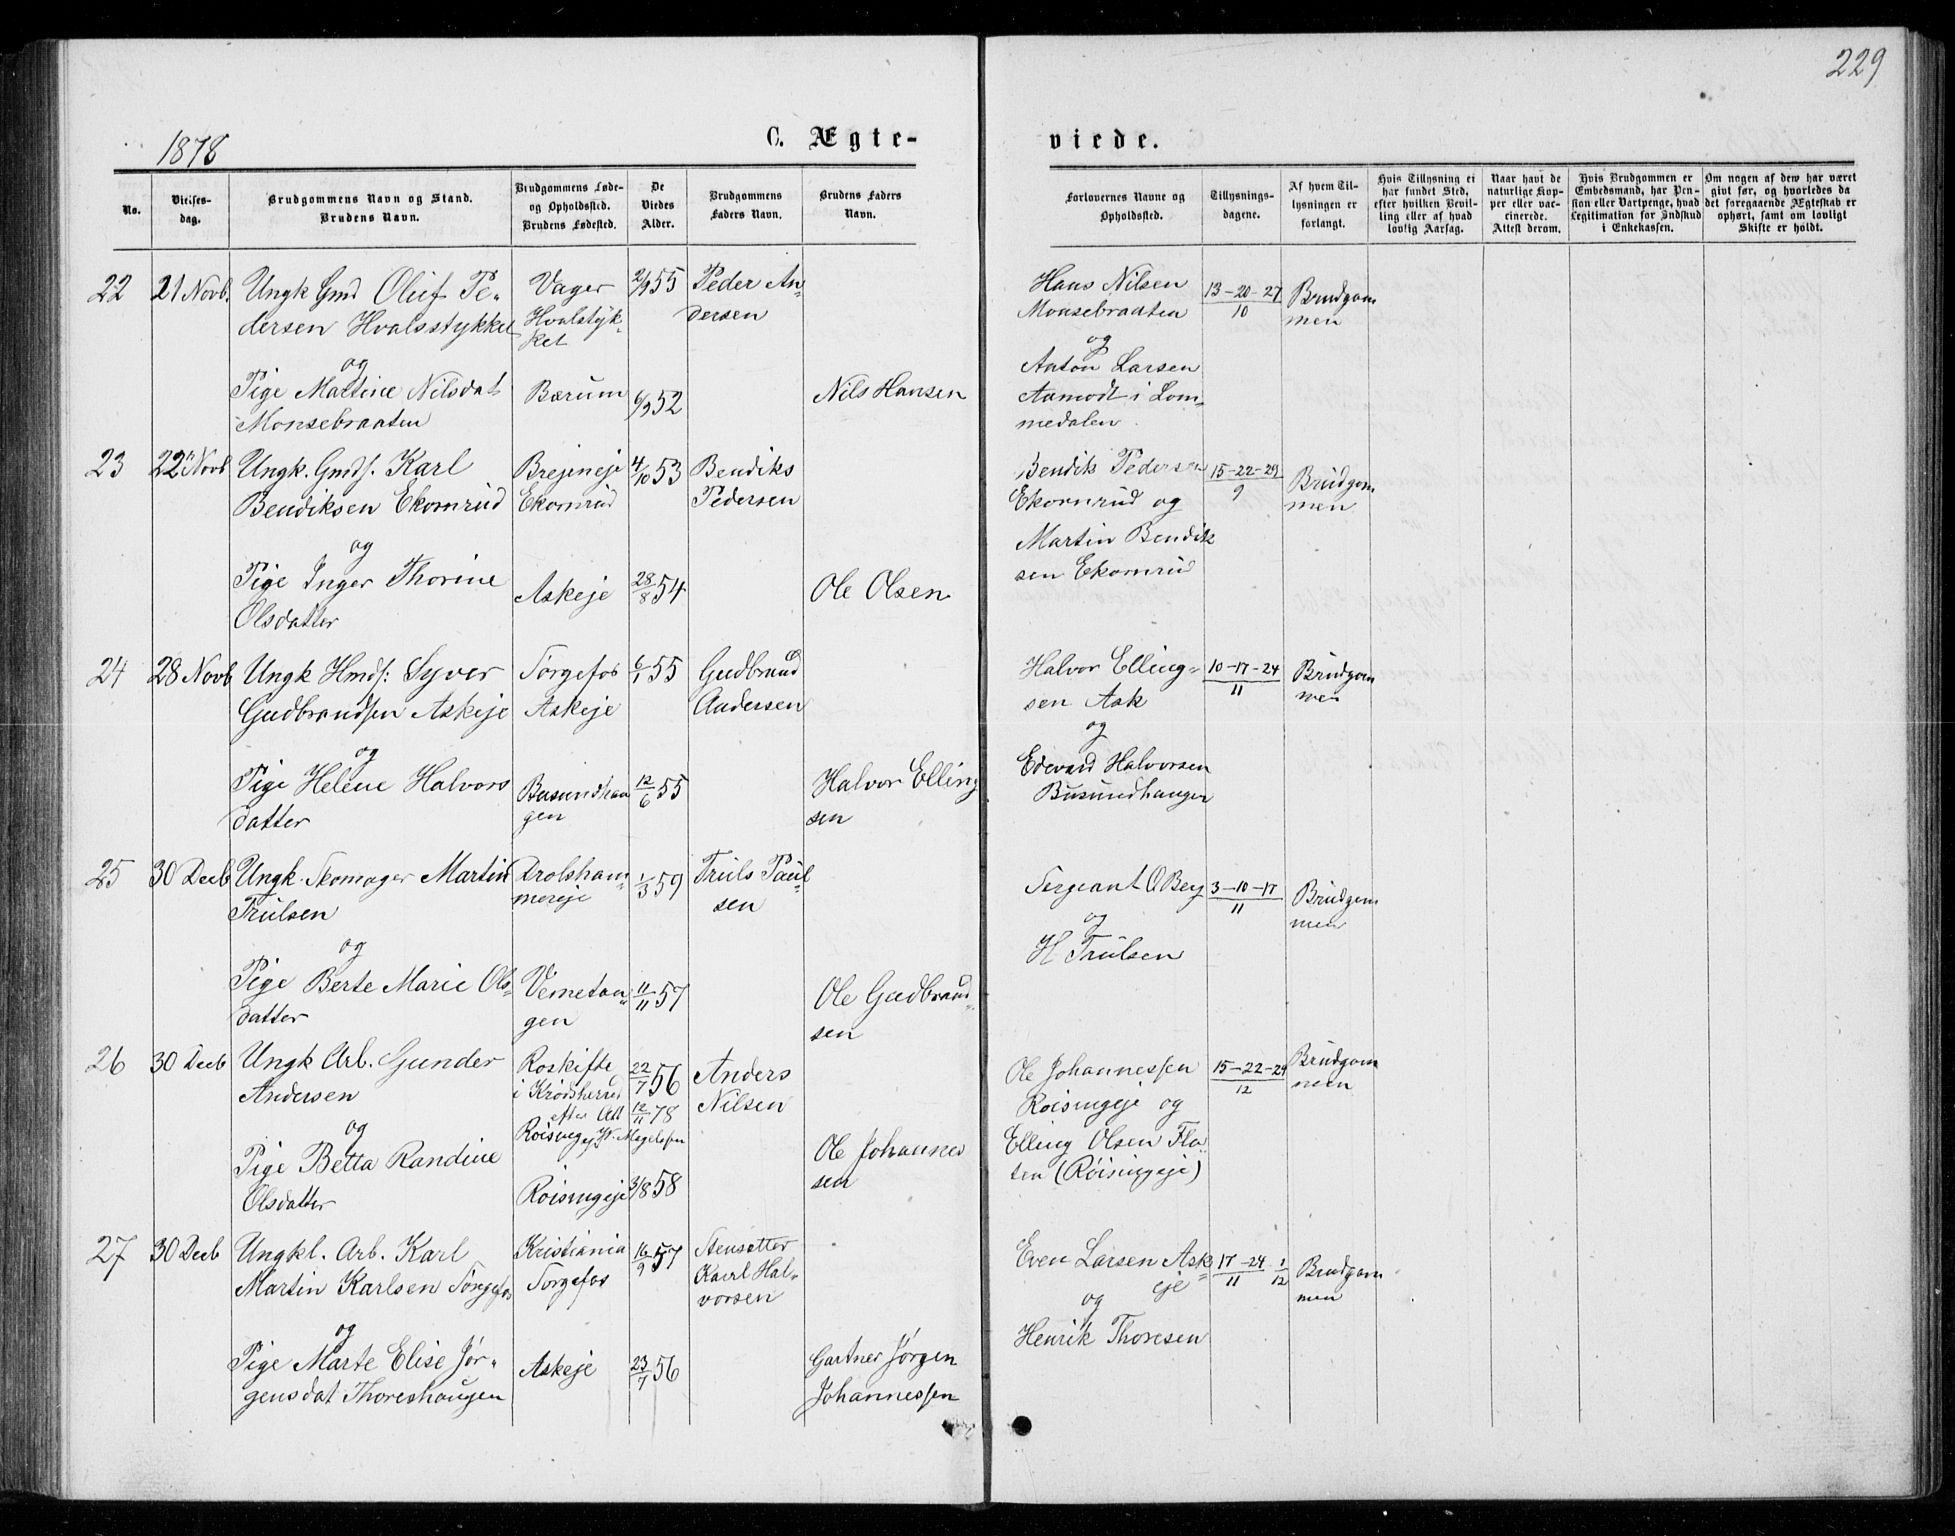 229
1878
C. Ægte-
viede.
No.
Vielses-
dag.
Brudgommens Navn og Stand.
Brudens Navn.
Brudgommens Føde-
og Opholdssted.
Brudens Fødested.
De
Viedes
Alder.
Brudgommens
Faders Navn.
Brudens Faders
Navn.
Forlovernes Navne og
Opholdssted.
Tillysnings-
dagene.
Af hvem Til-
lysningen er
forlangt.
Hvis Tillysning ei
har fundet Sted,
efter hvilken Bevil-
ling eller af hvad
lovlig Aarsag.
Naar havt de
naturlige Kop-
per eller vac-
cinerede.
Attest derom.
Hvis Brudgommen er
Embedsmand, har Pen-
sion eller Vartpenge, hvad
Legitimation for Indskud
i Enkekassen.
Om nogen af dem har været
givt før, og hvorledes da
det foregaaende Ægteskab er
ophørt, samt om lovligt
Skifte er holdt.
22
21 Novb.
Ungk Gmd Oluf Pe-
dersen Hvalsstykket
og
Pige Martine Nilsdat
Monsebraaten
Vager
Hvalstyk-
ket
Bærum
2/9 55
6/9 52
Peder An-
dersen
Nils Hansen
Hans Nilsen
Monsebraaten
og
Anton Larsen
Aamodt i Lom-
medalen
13-20-27
10
Brudgom
men
23
22 Novb
Ungk. Gmds. Karl
Bendiksen Ekornrud
og
Pige Inger Thorine
Olsdatter
Brejeneje
Ekornrud
Askeje
4/10 53
28/8 54
Bendiks
Pedersen
Ole Olsen
Bendik Pedersen
Ekornrud og
Martin Bendik
sen Ekornrud
15-22-29
9
Brudgom
men
24
28 Novb
Ungk Hmds: Syver
Gudbrandsen Askeje
og
Pige Helene Halvors
datter
Torgefos
Askeje
Busundhau
gen
6/1 55
12/6 55
Gudbrand
Andersen
Halvor Elling
sen
Halvor Elling-
sen Ask
og
Edevard Halvorsen
Busundhaugen
10-17-24
11
Brudgom
men
25
30 Decb
Ungk. Skomager Martin
Trulsen
og
Pige Berte Marie Ols-
datter
Drolsham-
mereje
Vemetan-
gen
1/3 59
11/11 57
Truls Paul
sen
Ole Gudbrand-
sen
Sergeant O Berg
og
H Trulsen
3-10-17
11
Brudgom
men
26
30 Decb
Ungk Arb. Gunder
Andersen
og
Pige Betta Randine
Olsdatter
Roskifte
i Krødsherred
efter Att
12/11 78
Røisingeje
Magelssen
Røisingeje
22/7 56
3/8 58
Anders
Nilsen
Ole Johannes
sen
Ole Johannessen
Røisingeje og
Elling Olsen Fla-
ten (Røisingeje)
15-22-29
12
Brudgom
men
27
30 Decb
Ungkl. Arb. Karl
Martin Karlsen Torgefos
og
Pige Marte Elise Jør-
gensdat Thoreshaugen
Kristiania
Torgefos
Askeje
16/9 57
23/7 56
Stensetter
Karl Hal-
vorsen
Gartner Jørgen
Johannessen
Even Larsen Ask-
eje
og
Henrik Thoresen
17-24 1
11 12
Brudgom
men